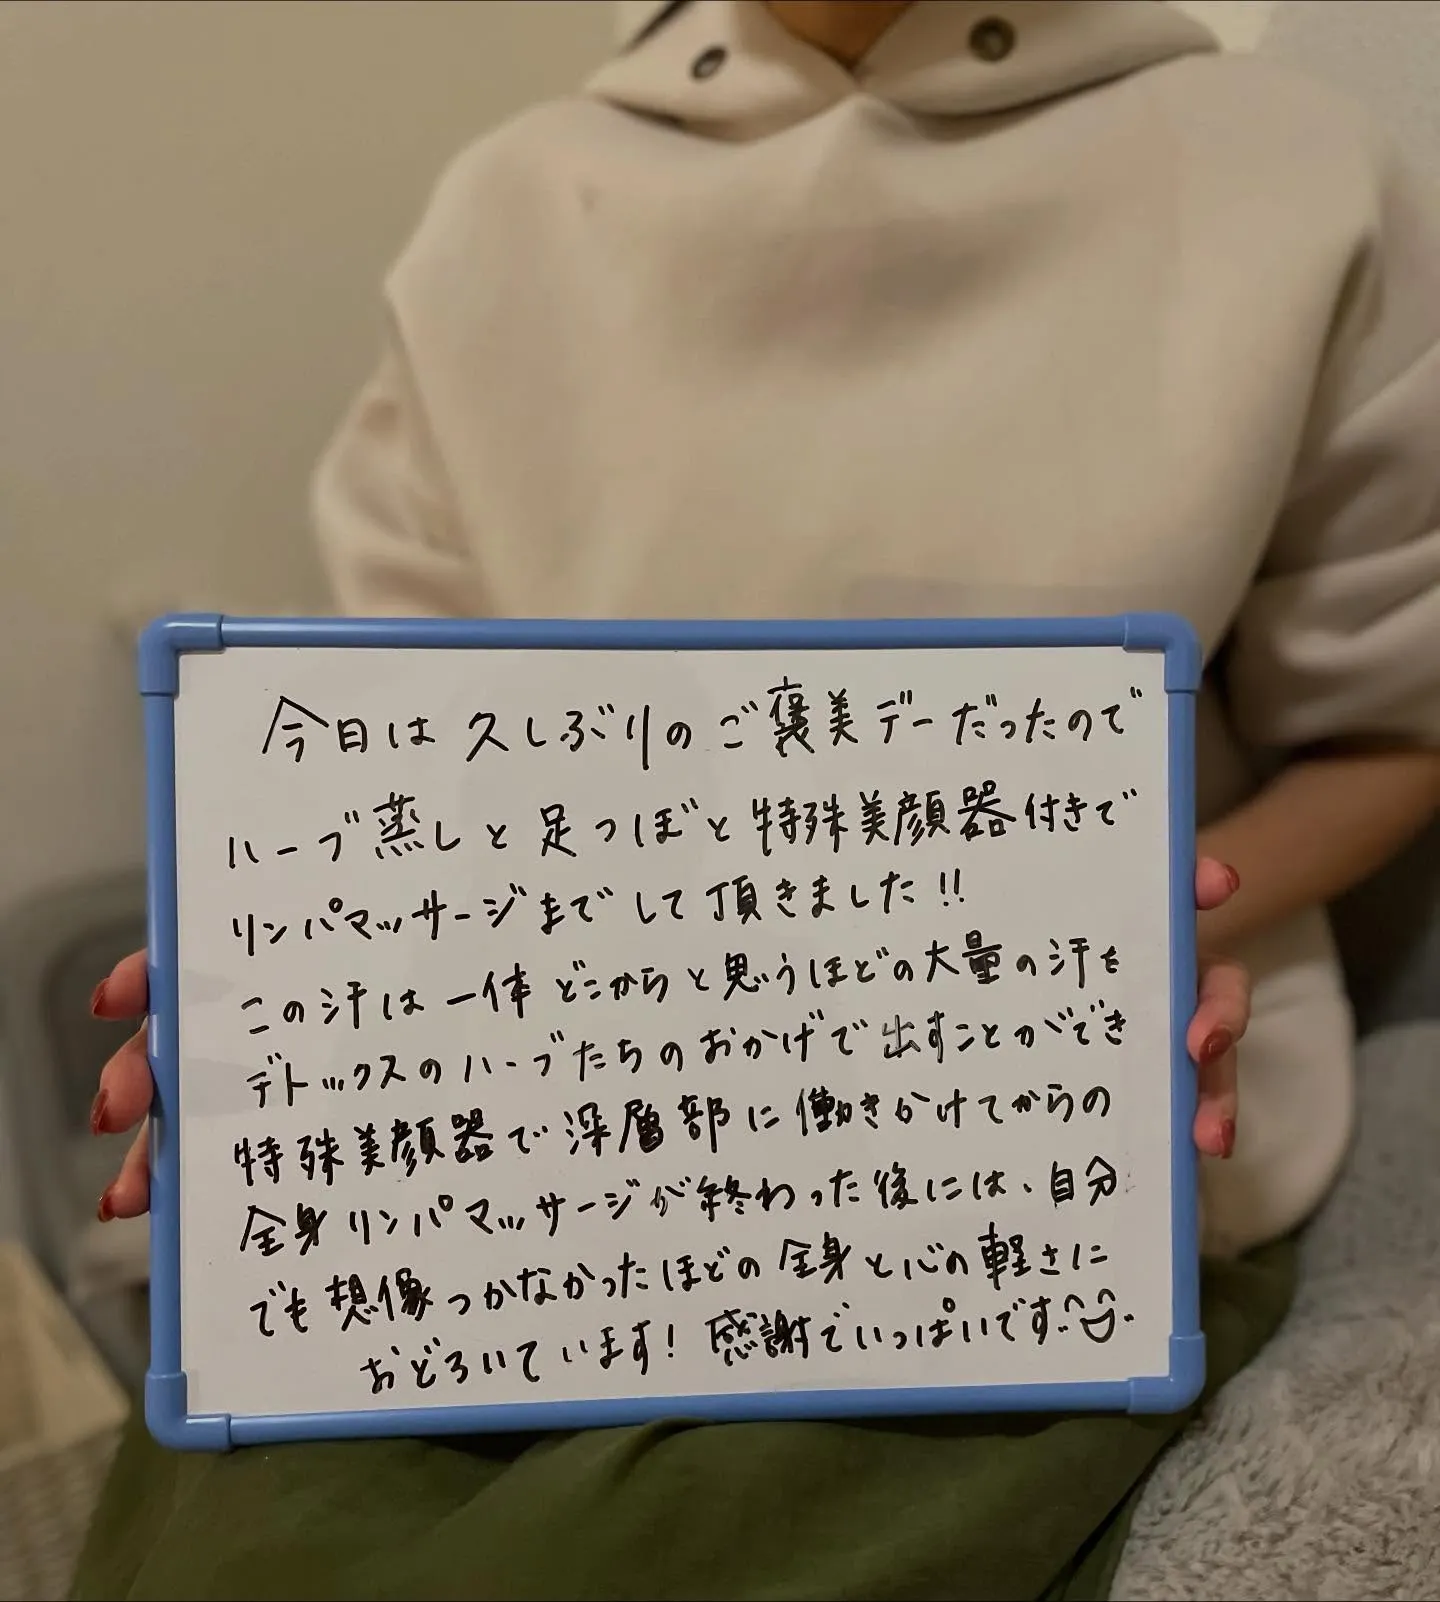 今日は久しぶりのご褒美デーだったので
ハーブ蒸しと足つぼと特殊美顔器付きで
リンパマッサージまでして頂きました!!
この汗は一体どこからと思うほどの大量の汗を
デトックスのハーブたちのおかげで出すことができ
特殊美顔器で深層部に働きかけてからの
全身リンパマッサージが終わった後には、自分
でも想像つかなかったほどの全身と心の軽さに
おどろいています!感謝でいっぱいです。